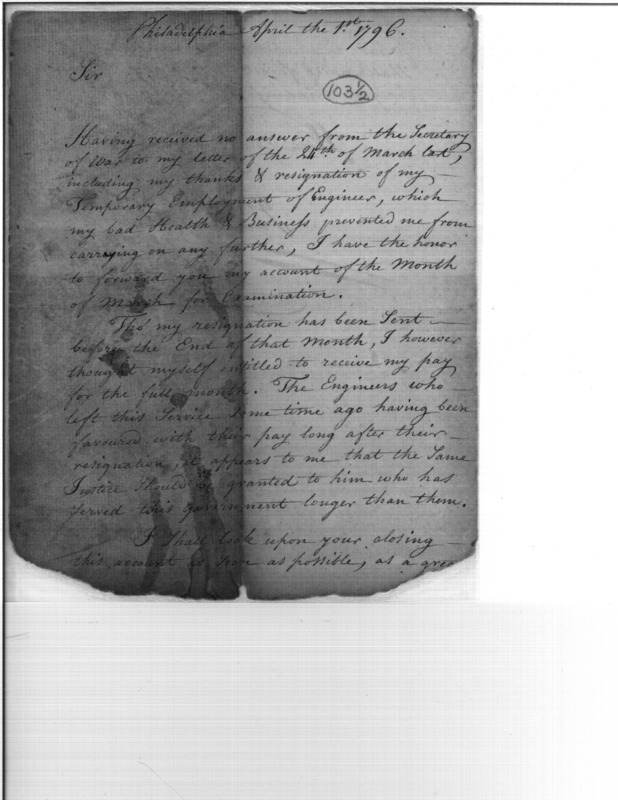 Philadelphia April the 1.st 1796.
Sir
103 1/2
Having received no answer from the Secretary
of War to my letter of the 24th of March last,
including my thanks & resignation of my
Temporary Employment of Engineer, which
my bad Health & Business prevented me from
carrying on any further, I have the honor
to forward you my account of the Month
of March for Examination.
Tho' my resignation has been Sent
before the End of that Month, I however
thought myself entitled to receive my pay
for the full month. The Engineers who
left this Service some time ago having been
favoured with their pay long after their
resignation, it appears to me that the Same
Justice Should be granted to him who has
served this government longer than them.
I Shall look upon your closing
this account as soon as possible, as a grea